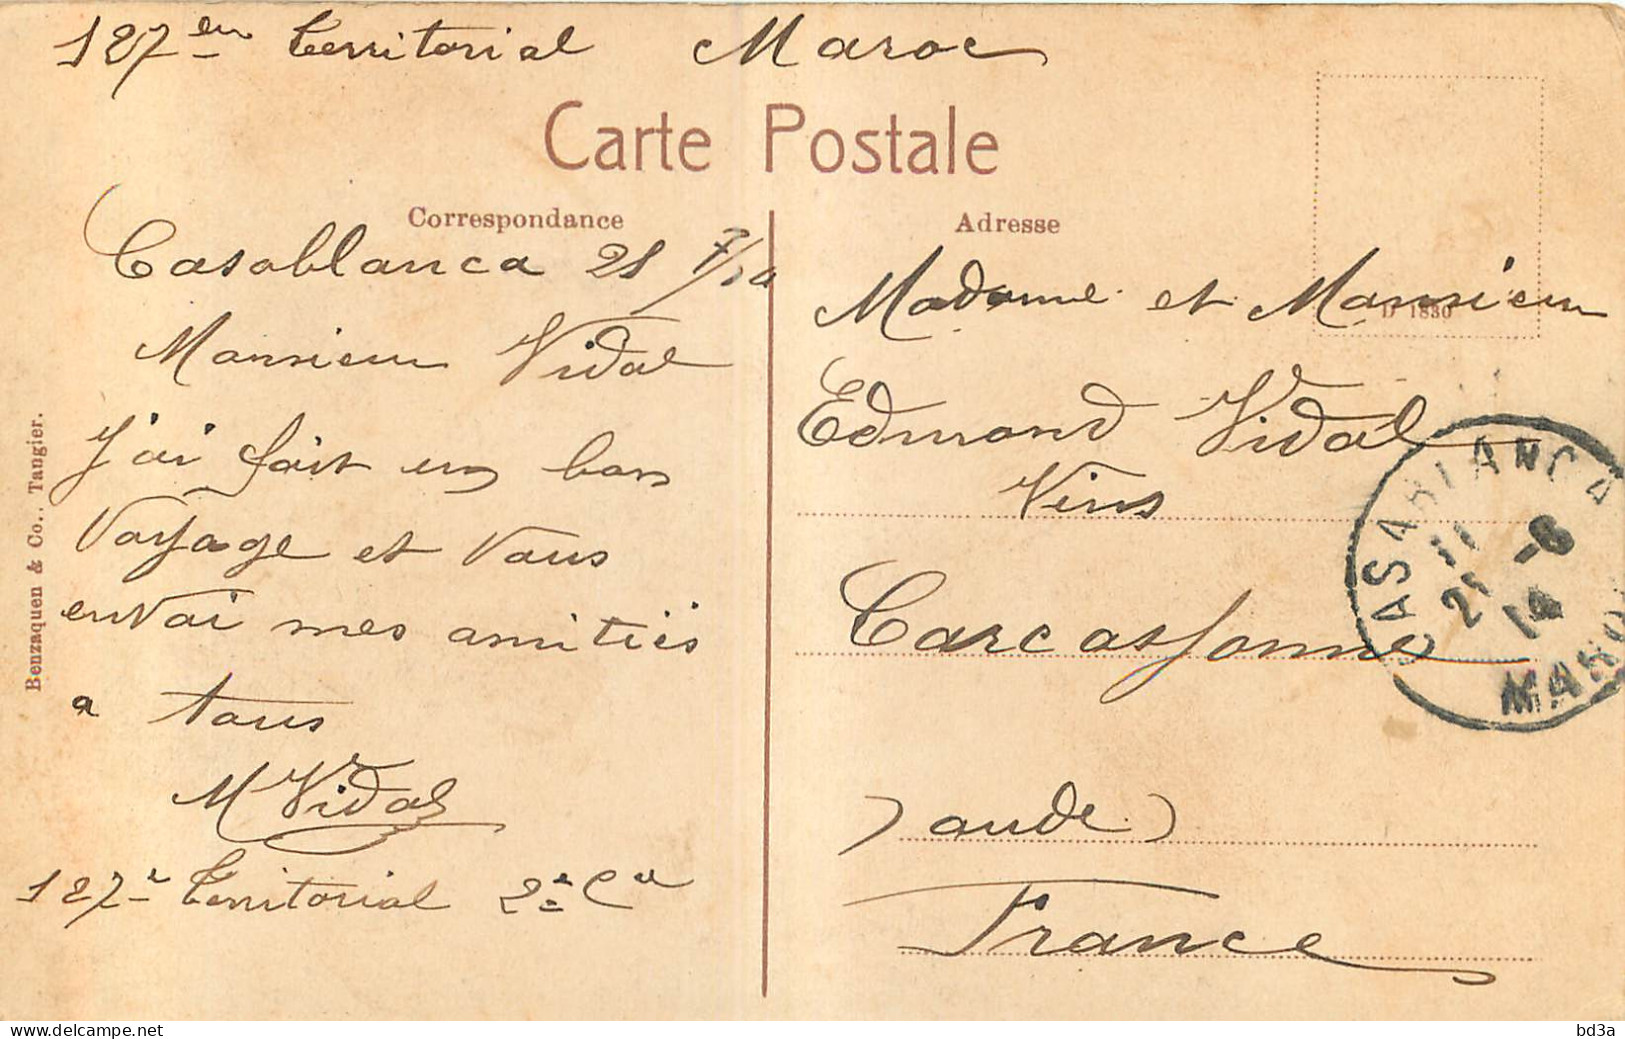 127 em Territorial Maroc
Carte Postale
Correspondance
Casablanca 21
Monsieur Vidal
J'ai fait un bon
voyage et vous
envoi mes amitiés
a tous
M Vidal
127e Territorial 2e Cie
Benzaquen & Co., Tangier.
Adresse
D 1830
Madame et Monsieur
Edmond Vidal
Vins
Carcassonne
aude
France
CASABLANCA
11
21 -8
14
MAROC
www.delcampe.net
bd3a